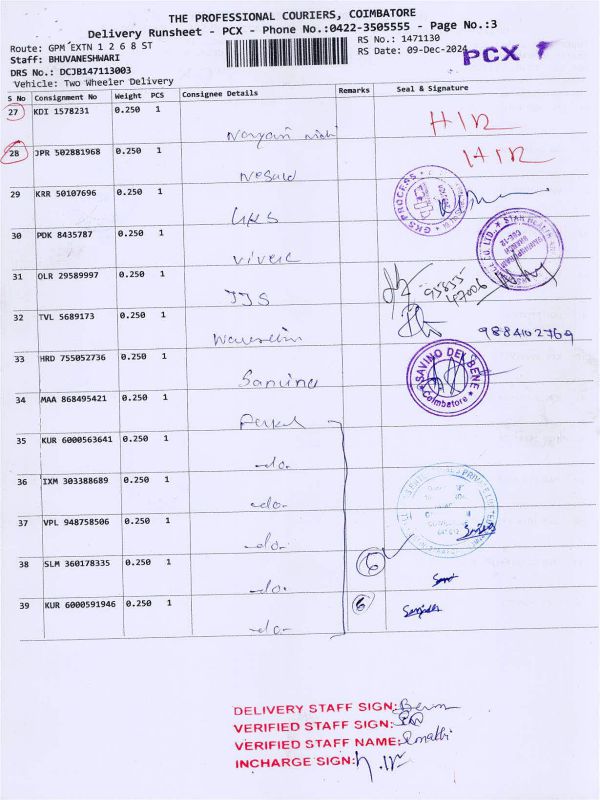 THE PROFESSIONAL COURIERS, COIMBATORE
Delivery Runsheet - PCX - Phone No.:0422-3505555 - Page No.:3
Route: GPM EXTN 1 2 6 8 ST
RS No.: 1471130
Staff: BHUVANESHWARI
RS Date: 09-Dec-2024
PCX
DRS No.: DCJB147113003
Vehicle: Two Wheeler Delivery
S No Consignment No Weight PCS Consignee Details Remarks Seal & Signature
27 KDI 1578231 0.250 1
28 JPR 502881968 0.250 1
29 KRR 50107696 0.250 1 GKS
GKS PROCESS
30 PDK 8435787 0.250 1 Vivek
31 OLR 29589997 0.250 1 JJS
95855
47006
32 TVL 5689173 0.250 1
9884102769
33 HRD 755052736 0.250 1 Savino
SAVINO DEL BENE
Coimbatore
34 MAA 868495421 0.250 1
35 KUR 6000563641 0.250 1 -do-
36 IXM 303388689 0.250 1 -do-
37 VPL 948758506 0.250 1 -do-
38 SLM 360178335 0.250 1 -do- 6
39 KUR 6000591946 0.250 1 -do- 6
DELIVERY STAFF SIGN:
VERIFIED STAFF SIGN:
VERIFIED STAFF NAME:
INCHARGE SIGN: